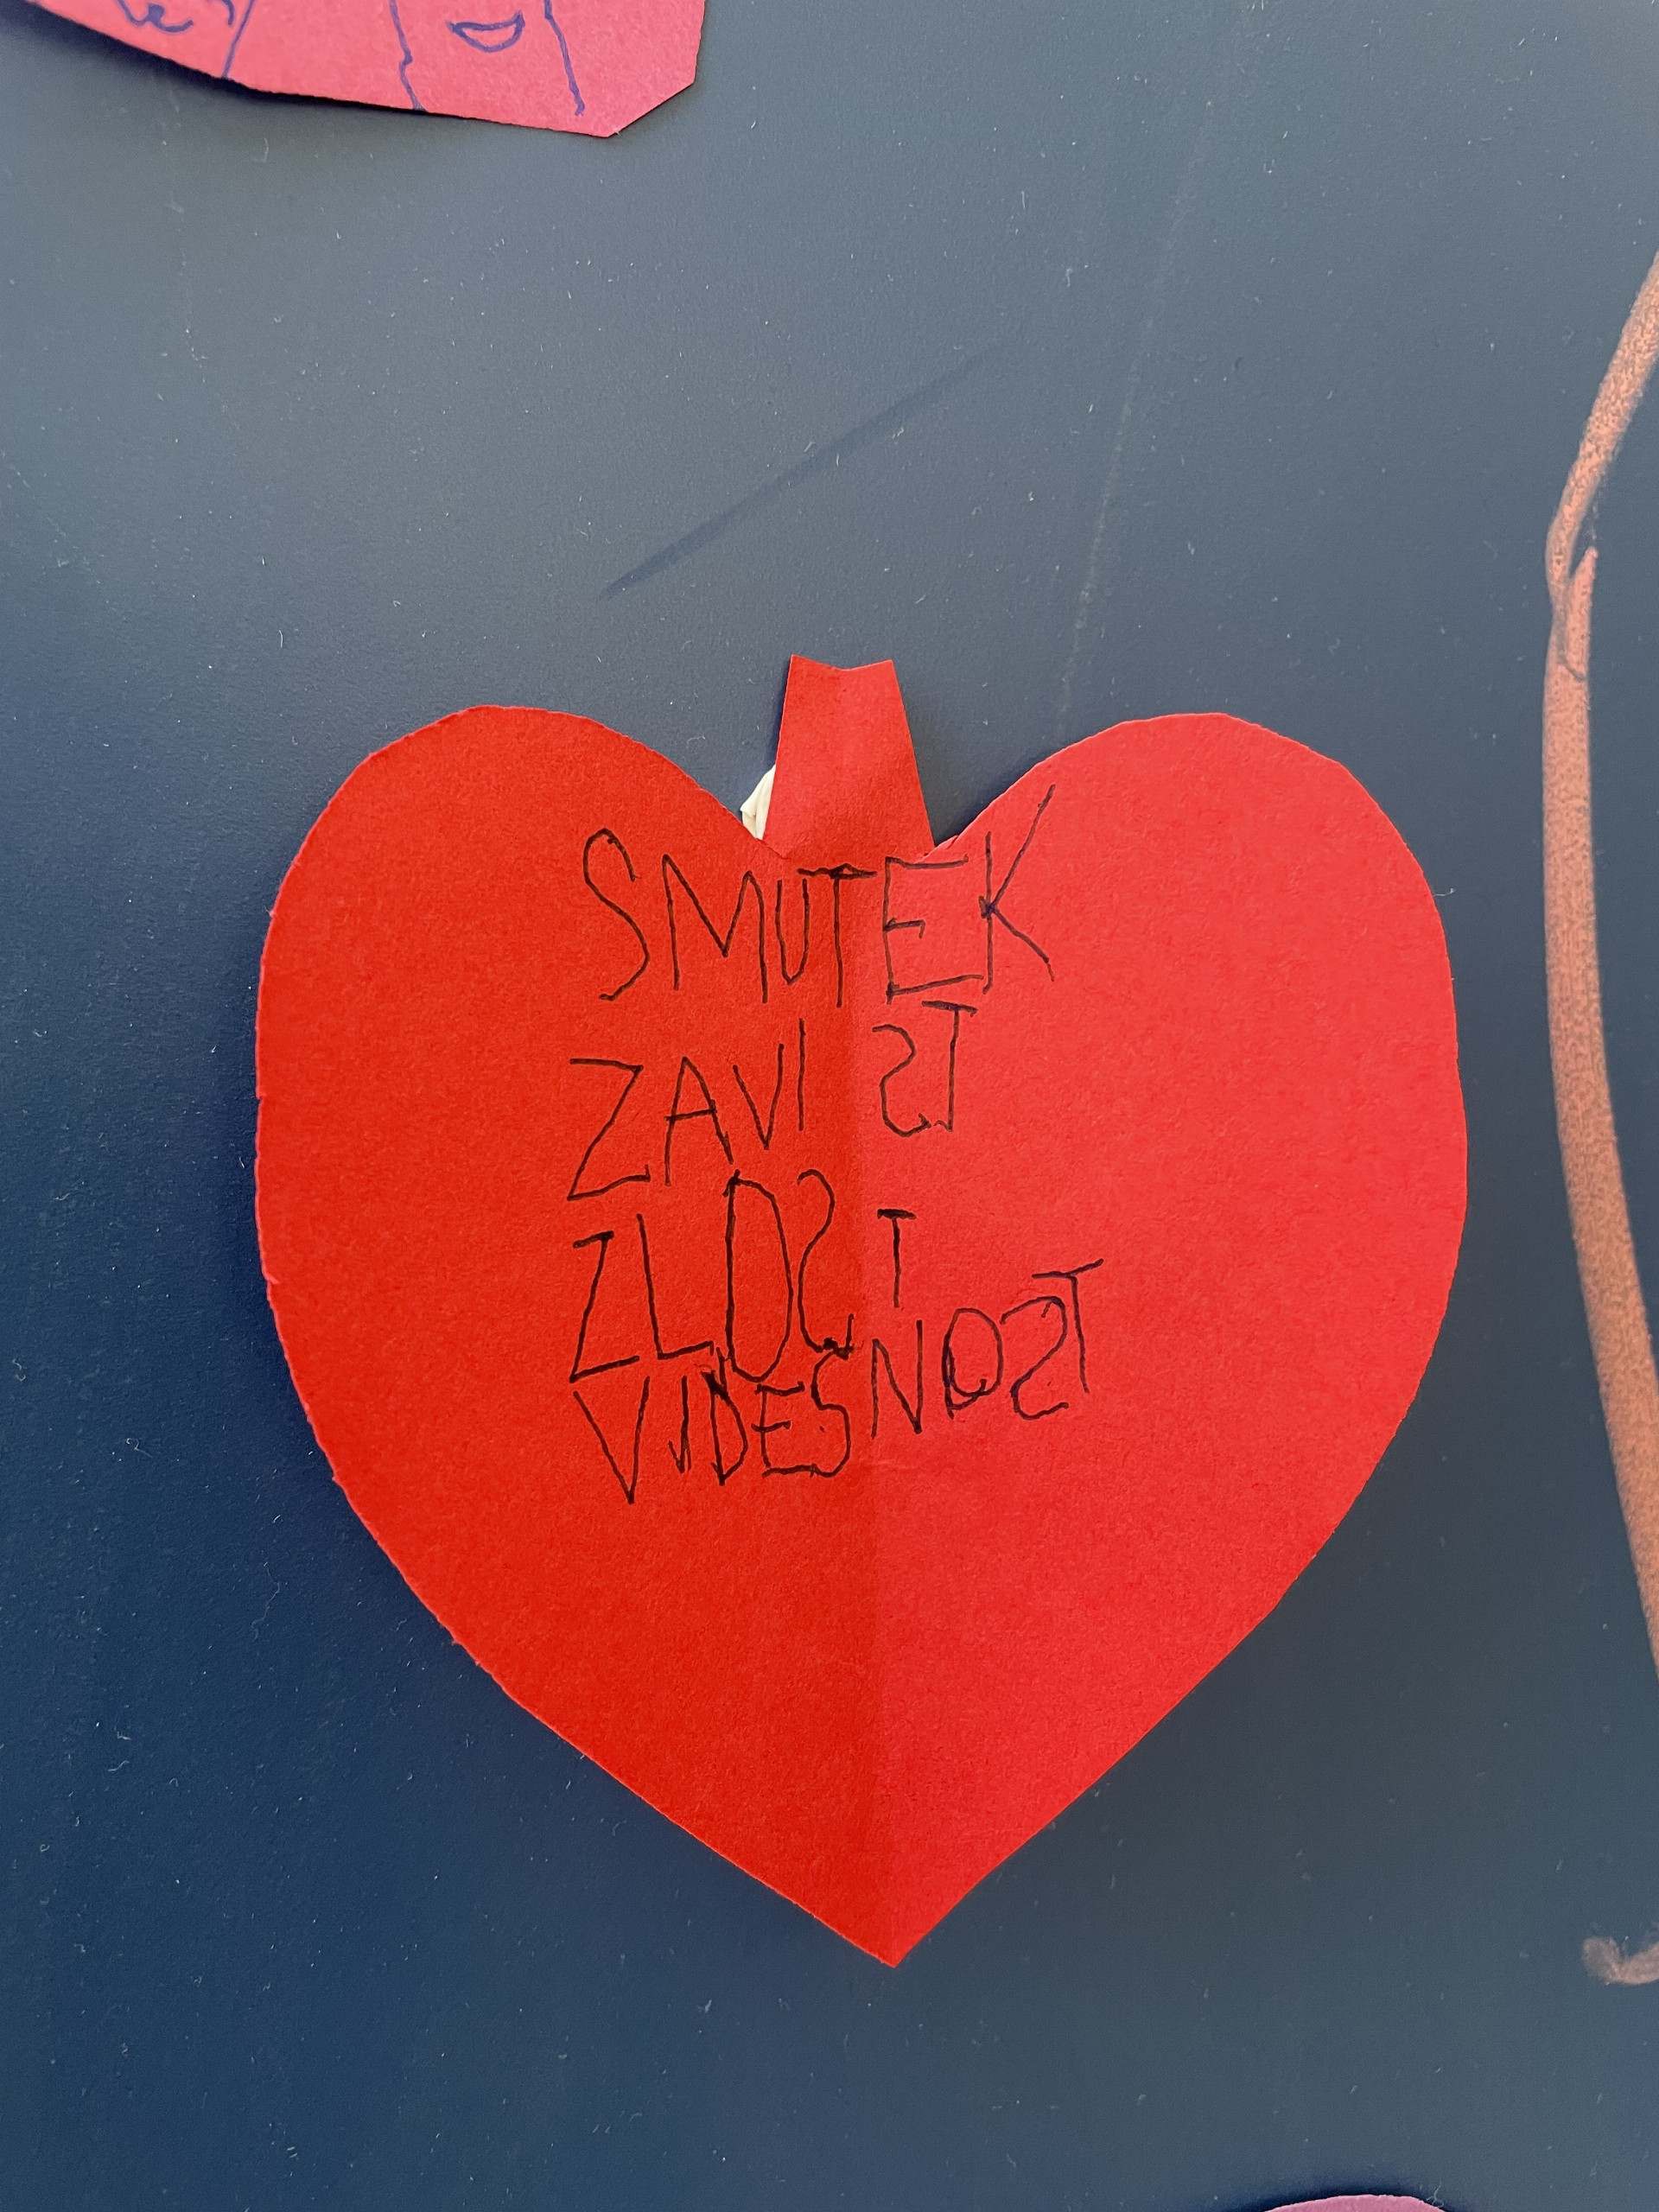 SMUTEK
ZAVIST
ZLOST
VIDESNOST